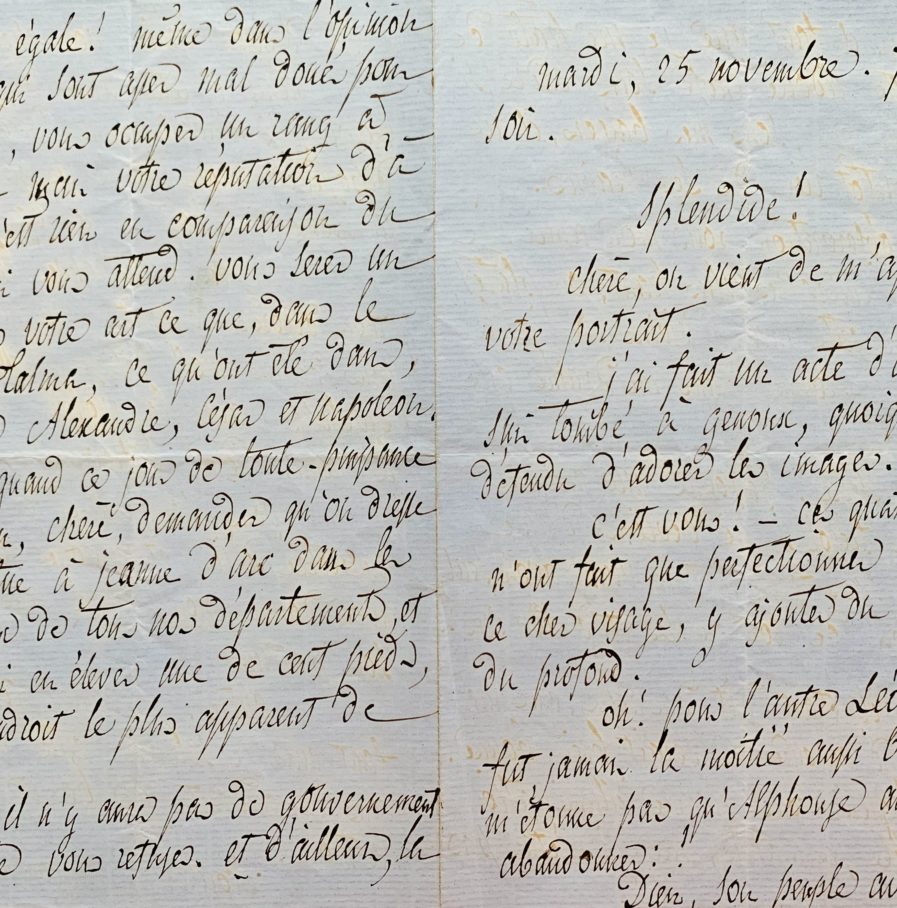 égale! même dans l'opinion
qui sont assez mal doués pour
, vous occupez un rang à
mais votre réputation d'à
est rien en comparaison du
vous attend. vous serez un
votre art ce que, dans le
Talma, ce qu'ont été dans,
Alexandre, César et Napoléon.
quand ce jour de toute-puissance
, chère, demandez qu'on dresse
à jeanne d'arc dans le
de tous nos départements, et
en élever une de cent pieds,
droit le plus apparent de
il n'y aura pas de gouvernement
vous refuser. et d'ailleurs, la
mardi, 25 novembre.
soir.
Splendide!
chère, on vient de m'ap
votre portrait.
j'ai fait un acte d'
suis tombé à genoux, quoiq
défendu d'adorer les images.
c'est vous! - ces
n'ont fait que perfectionner
ce cher visage, y ajouter du
du profond.
oh! pour l'autre
fut jamais la moitié aussi b
m'étonne pas qu'Alphonse a
abandonner:
Dieu, son peuple